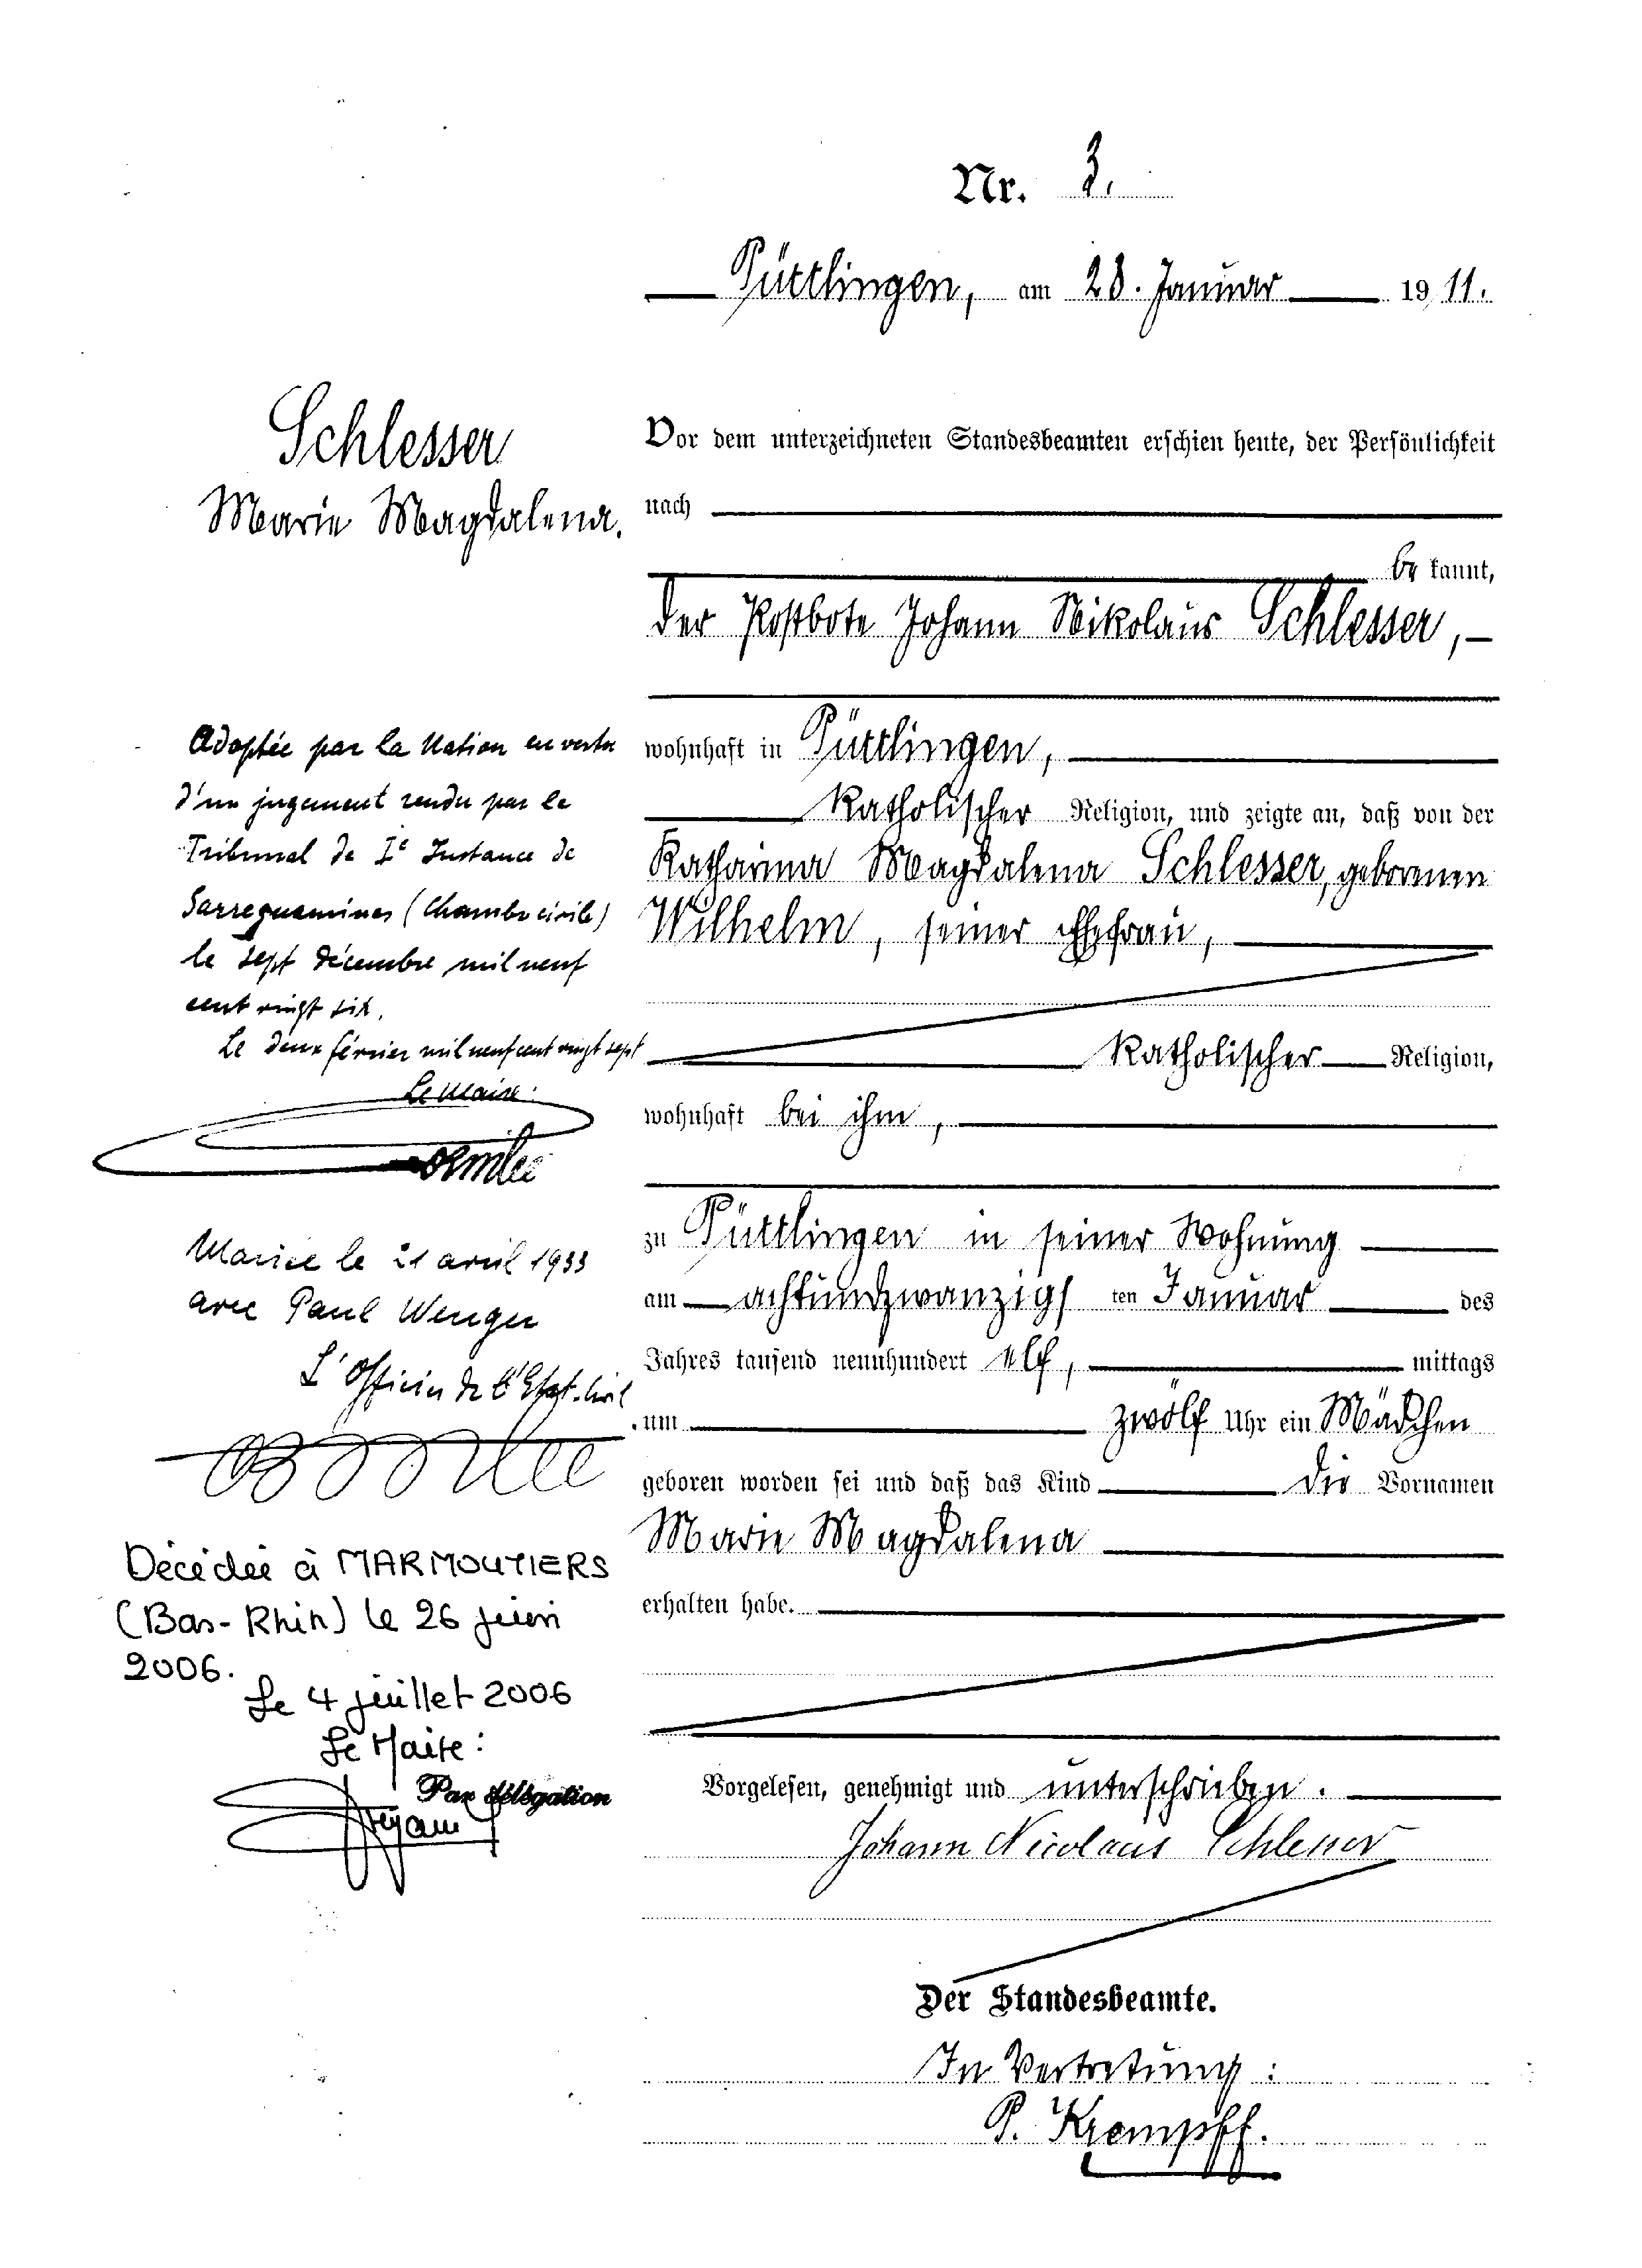 Nr. 3.
Püttlingen, am 28. Januar 1911.
Schlesser
Marie Magdalena.
Vor dem unterzeichneten Standesbeamten erschien heute, der Persönlichkeit
nach
be kannt,
der Postbote Johann Nikolaus Schlesser,
wohnhaft in Püttlingen,
katholischer Religion, und zeigte an, daß von der
Katharina Magdalena Schlesser, geborenen
Wilhelm, seiner Ehefrau,
katholischer Religion,
wohnhaft bei ihm,
zu Püttlingen in seiner Wohnung
am achtundzwanzigs ten Januar des
Jahres tausend neunhundert elf, mittags
um zwölf Uhr ein Mädchen
geboren worden sei und daß das Kind die Vornamen
Marie Magdalena
erhalten habe.
Vorgelesen, genehmigt und unterschrieben.
Johann Nicolaus Schlesser
Der Standesbeamte.
In Vertretung:
P. Krempff.
Adoptée par la Nation en vertu
d'un jugement rendu par le
Tribunal de Ie Instance de
Sarreguemines (Chambre civile)
le sept décembre mil neuf
cent vingt six.
Le deux février mil neuf cent vingt sept
Le Maire:
Mariée le 21 avril 1933
avec Paul Wenger
L'Officier de l'Etat-Civil
Décédée à MARMOUTIERS
(Bas-Rhin) le 26 juin
2006.
Le 4 juillet 2006
Le Maire:
Par délégation